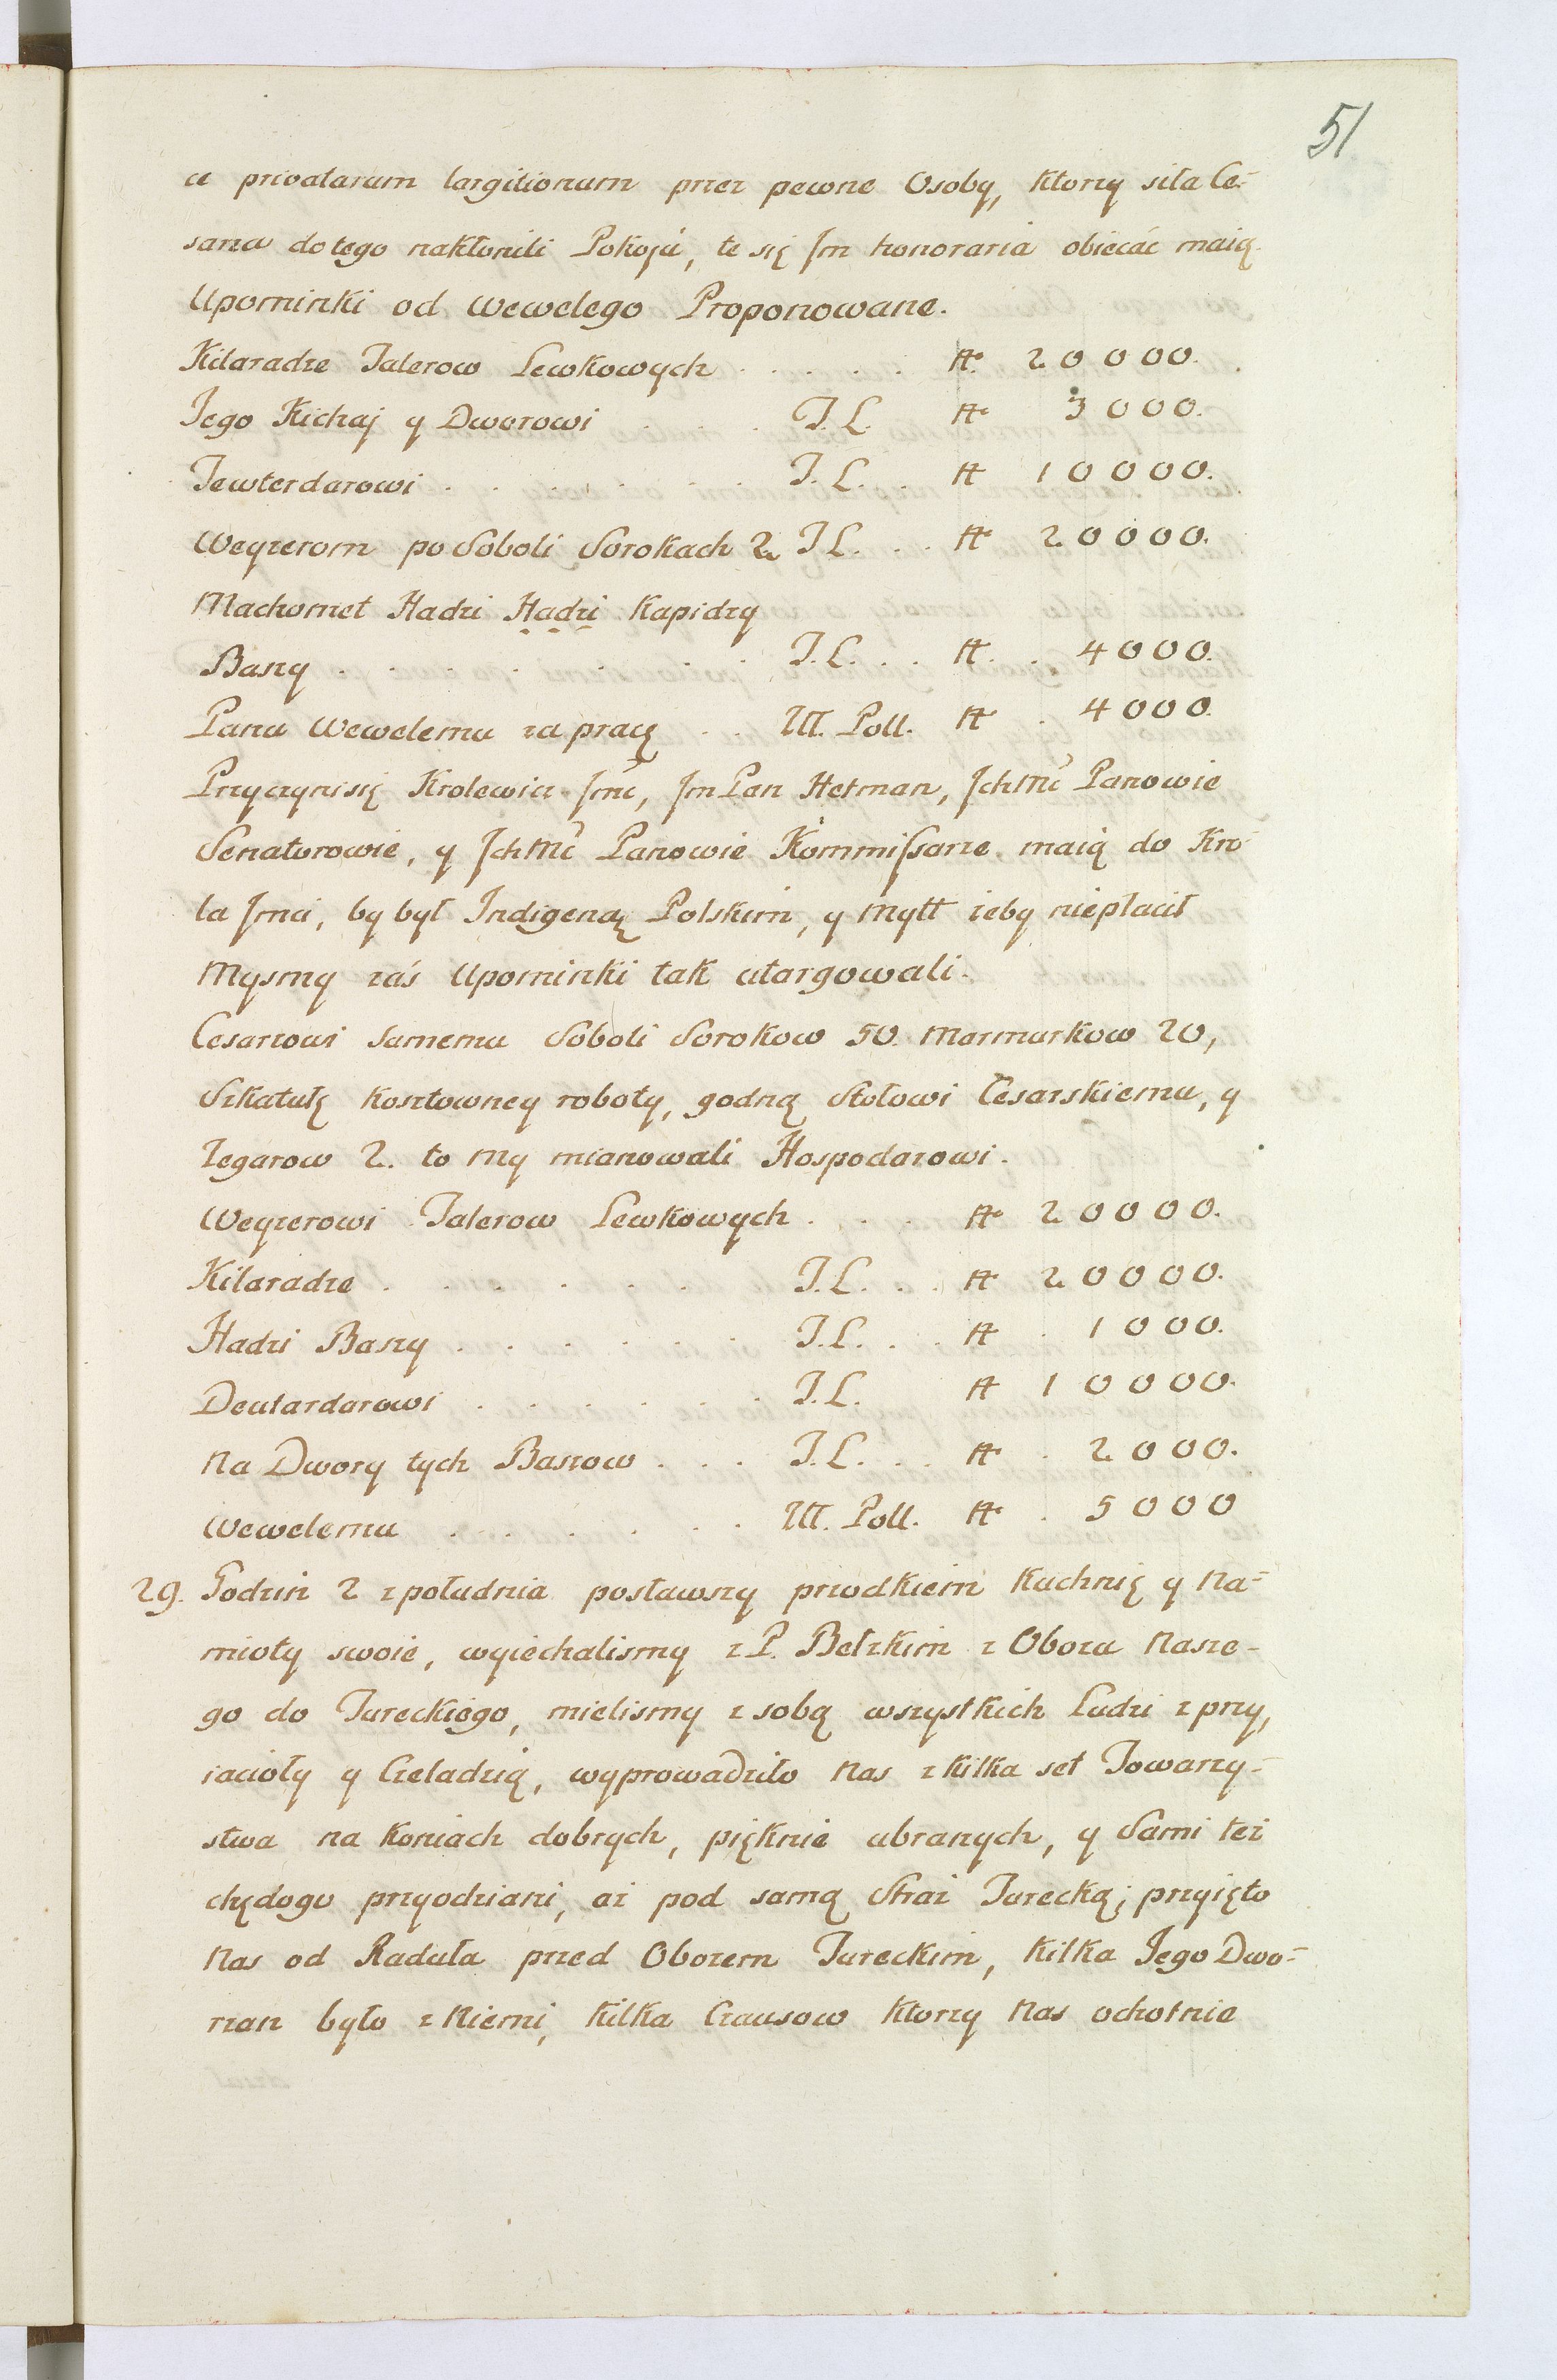 51
ce privatarum largitionum przez pewne Osoby, ktorzy siła Ce-
sarza do tego nakłonili Pokoju, te się Im honoraria obiecać maią.
Upominki od Wewelego Proponowane.
Kilaradze Talerow Lewkowych . . . . . № 20000.
Jego Kichaj y Dworowi . . . T. L. № 3000.
Tewterdarowi . . . . . . T. L. . № 10000.
Wezyerom po Soboli Sorokach 2 T L. . . № 20000.
Machomet Hadzi Hadzi Kapidzy
Baszy . . . . . . . T. L. . . № . 4000.
Panu Wewelemu za pracę . . Ztt. Poll. № . 4000.
Przyczyni się Krolewicz Jmć, Jm Pan Hetman, JchMć Panowie
Senatorowie, y JchMć Panowie Kommissarze maią do Kro-
la Jmci, by był Indigeną Polskim, y Mytt żeby niepłacił
Mysmy zaś Upominki tak utargowali.
Cesarzowi samemu Soboli Sorokow 50. Marmurkow 20,
Szkatułę kosztowney roboty, godną Stołowi Cesarskiemu, y
Zegarow 2. to my mianowali Hospodarowi.
Weyzerowi Talerow Lewkowych . . . № 20000.
Kilaradze . . . . . . T. L. . . № 20000.
Hadzi Baszy . . . . . . T. L. . . № . 1000.
Deutardarowi . . . . . . T. L. № 10000.
Na Dwory tych Baszow . . . T. L. . . № . 2000.
Wewelemu . . . . . . Ztt. Poll. № . 5000
29. Godzin 2 z południa posławszy przodkiem Kuchnię y Na-
mioty swoie, wyiechalismy z P. Bełzkim z Obozu Nasze-
go do Tureckiego, mielismy z sobą wszystkich Ludzi z przy,
iacioły y Czeladzią, wyprowadziło Nas z kilka set Towarzy-
stwa na koniach dobrych, pięknie ubranych, y Sami też
chędogo przyodziani, aż pod samą Straż Turecką; przyięto
Nas od Raduła przed Obozem Tureckim, kilka Jego Dwo-
rzan było z Niemi, kilka Czausow ktorzy Nas ochotnie